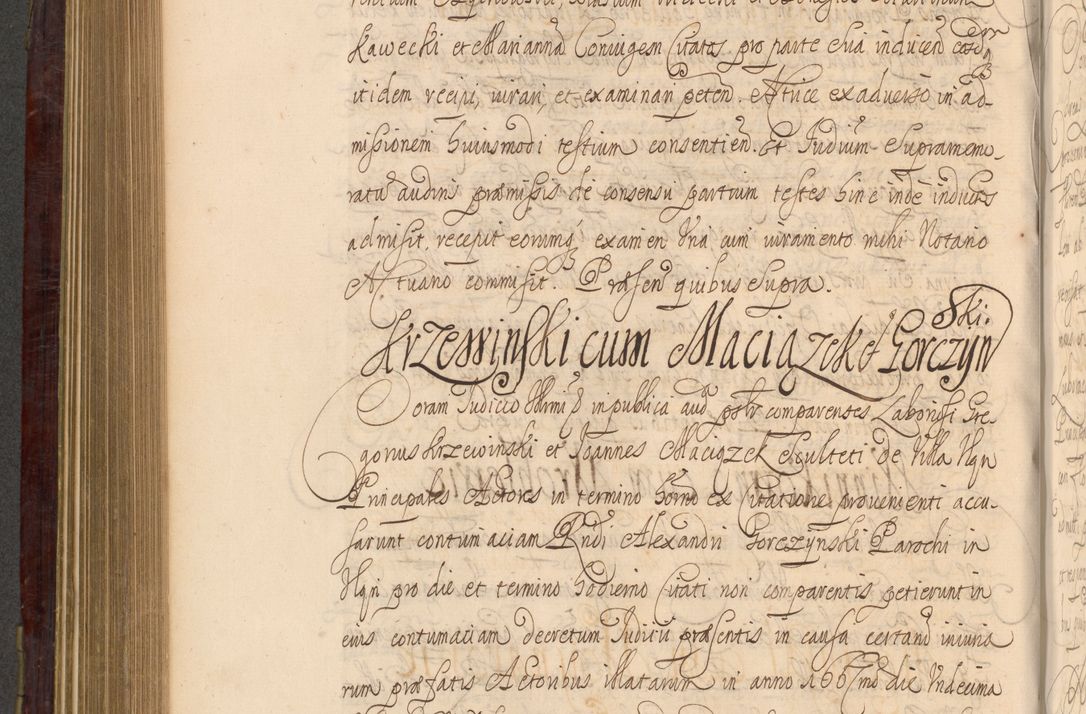 Kawecki et Mariannã Coniugem Citatas pro parte sua inducen
itidem recipi, iurari, et examinari peten. Actrice ex adverso in ad-
missionem huiusmodi testium consentien. Et Iudium Supramemo-
ratũ auditis præmissis de consensu partium testes hinc inde inductos
admisit, recepit eorumq examen Una cum iuramento mihi Notario
Actuario commisit. Præsen quibus Supra.
Krzewinski cum Maciązek et Gorczyn
Ski.
Coram Iudicio in publica aud comparentes Laboriosi Gre-
gorius Krzewinski et Ioannes Maciązek Sculteti de Villa
Principales Actores in termino horno ex Citatione provenienti accu-
sarunt contumaciam Rndi Alexandri Gorczynski Parochi in
pro die et termino hodierno Citati non comparentis petierunt in
eius contumaciam decretum Iudicii præsentis in causa certarũ iniuria
rum præfatis Actoribus illatarum in anno die Undecima